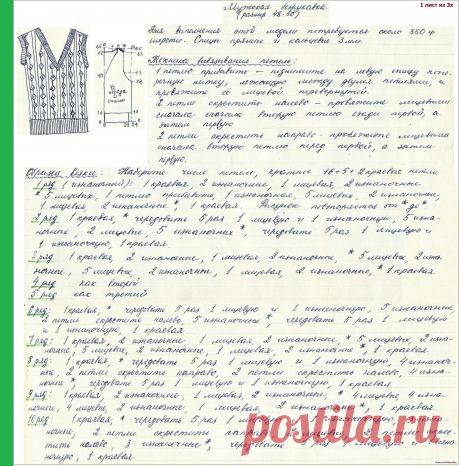 1 лист из 3х
Мужская безрукавка
(размер 48-50)
Для выполнения этой модели потребуется около 350 г
шерсти. Спицы прямые и кольцевые 3 мм.
Техника вывязывания петель:
1 петлю прибавить - поднимите на левую спицу
нитку, лежащую между двумя петлями, и
провяжите её лицевой перевернутой.
2 петли скрестить налево - провяжите лицевыми
сначала вторую петлю сзади первой, а
затем первую
2 петли скрестить направо - провяжите лицевыми
сначала вторую петлю перед первой, а затем
первую.
Образец вязки: Наберите число петель, кратное 16+5+2 краевые петли
1 ряд (изнаночный): 1 краевая, 2 изнаночные, 1 лицевая, 2 изнаночные
* 5 лицевых, 1 петлю прибавить, 1 изнаночная, 5 лицевых, 2 изнаночные,
1 лицевая 2 изнаночные *, 1 краевая. Рисунок повторяется от * до *
2 ряд: 1 краевая, * чередовать 5 раз 1 лицевую и 1 изнаночную, 5 изна-
ночные, 2 лицевые, 5 изнаночных *, чередовать 5 раз 1 лицевую и
1 изнаночную, 1 краевая.
3 ряд: 1 краевая, 2 изнаночные, 1 лицевая, 2 изнаночные, * 5 лицевых, 2 изна-
ночные, 5 лицевых, 2 изнаночные, 1 лицевая, 2 изнаночные, * 1 краевая
4 ряд как второй
5 ряд как третий
6 ряд: 1 краевая, * чередовать 5 раз 1 лицевую и 1 изнаночную, 5 изнаночные,
2 петли скрестить налево, 5 изнаночные *, чередовать 5 раз 1 лицевую
и 1 изнаночную, 1 краевая
7 ряд: 1 краевая, 2 изнаночные 1 лицевая, 2 изнаночные, * 5 лицевых, 2 изна-
ночные, 5 лицевые, 2 изнаночные, 1 лицевая, 2 изнаночные *, 1 краевая
8 ряд: 1 краевая, * чередовать 5 раз 1 лицевую и 1 изнаночную, 4 изнаноч-
ные, 2 петли скрестить направо, 2 петли скрестить налево, 4 изна-
ночные *, чередовать 5 раз 1 лицевую и 1 изнаночную, 1 краевая
9 ряд: 1 краевая, 2 изнаночные, 1 лицевая, 2 изнаночные, * 4 лицевые, 4 изна-
ночные, 4 лицевые, 2 изнаночные, 1 лицевая, 2 изнаночные *, 1 краевая
10 ряд: 1 краевая, * чередовать 5 раз 1 лицевую и 1 изнаночную, 3 изна-
ночные, 2 петли скрестить направо, 2 лицевые, 2 петли скрес-
тить налево, 3 изнаночные, * чередовать 5 раз 1 лицевую и 1 изна-
ночную, 1 краевая
postila.ru